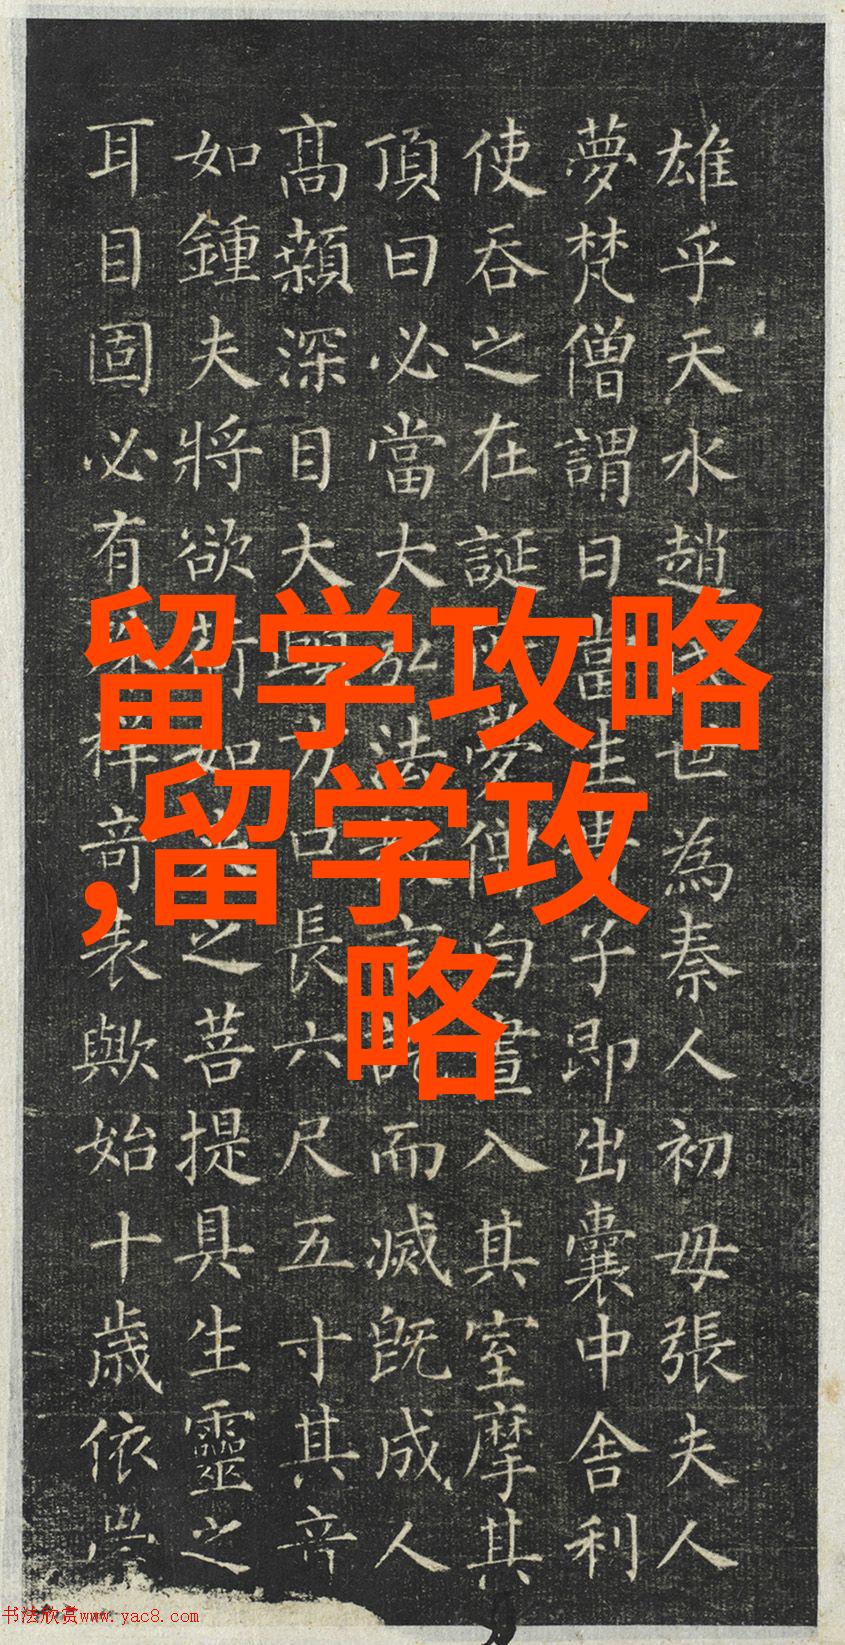 雄乎天水趙世為秦人初母張夫人
夢梵僧謂曰當生子即出囊中舍利
使吞之在誕夢僧白晝入其室摩其
頂曰必當大弘法而滅既成人
高顙深目大頤方口長六尺五寸其音
如鍾夫將欲荷如之菩提具生靈之
耳目固必有祥奇表歟始十歲依
留学攻略
,留学攻
略
书法欣赏www.yac8.com